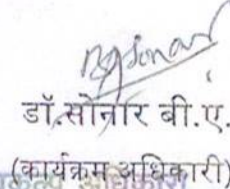 डॉ.सोनार बी.ए.
(कार्यक्रम अधिकारी)